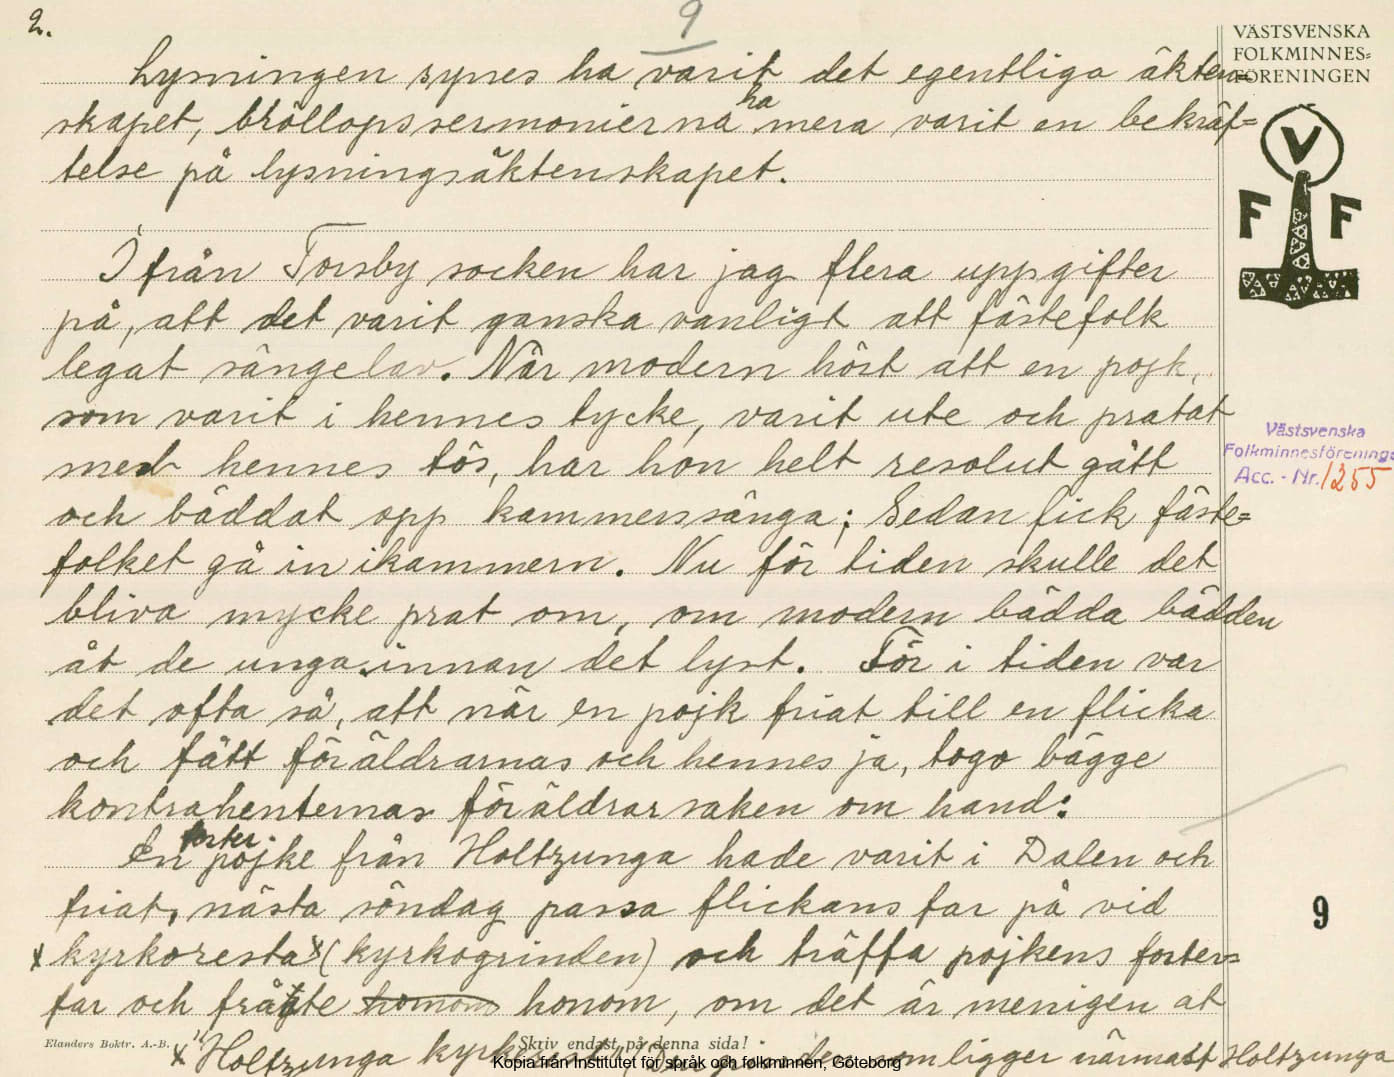 2.
9
VÄSTSVENSKA
FOLKMINNES-
FÖRENINGEN
V
F F
Lysningen synes ha varit det egentliga äkten=
skapet, bröllopssermonierna ha mera varit en bekräf=
telse på lysningsäktenskapet.
Ifrån Torsby socken har jag flera uppgifter
på, att det varit ganska vanligt att fästefolk
legat sängelav. När modern hört att en pojk,
som varit i hennes tycke, varit ute och pratat
med hennes tös, har hon helt resolut gått
och bäddat opp kammerssänga; Sedan fick fäste=
folket gå in ikammern. Nu för tiden skulle det
bliva mycke prat om, om modern bädda bädden
åt de unga innan det lyst. För i tiden var
det ofta så, att när en pojk friat till en flicka
och fått föräldrarnas och hennes ja, togo bägge
kontrahenternas föräldrar saken om hand:
En foster pojke från Holtzunga hade varit i Dalen och
friat, nästa söndag passa flickans far på vid
x kyrkoresta x (kyrkogrinden) och träffa pojkens foster=
far och frågte honom, om det är menigen at
x "Holtzunga
som ligger närmast Holtzunga
Västsvenska
Folkminnesförenings
Acc. - Nr. 1255
9
Elanders Boktr. A.-B.
Skriv endast på denna sida!
Kopia från Institutet för språk och folkminnen, Göteborg